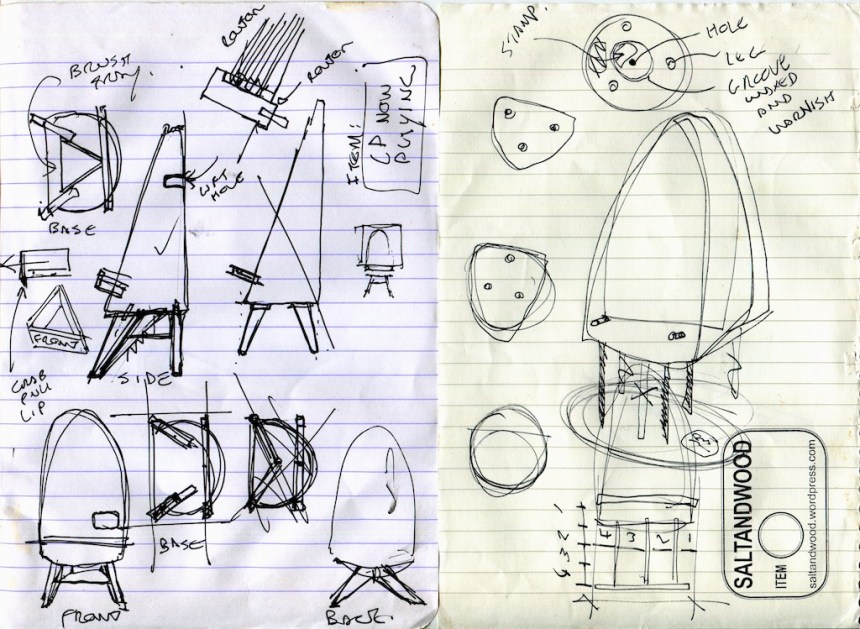 ROUTER
ROUTER
BRUSH
BASE
HOLE
ITEM:
LP NOW
PLAYING
FRONT
SIDE
LIP
BASE
FRONT
BACK.
STAMP.
HOLE
LEG
GROOVE
WAXED
AND
VARNISH
1 2 3 4
4 3 2 1
SALTANDWOOD
ITEM
saltandwood.wordpress.com